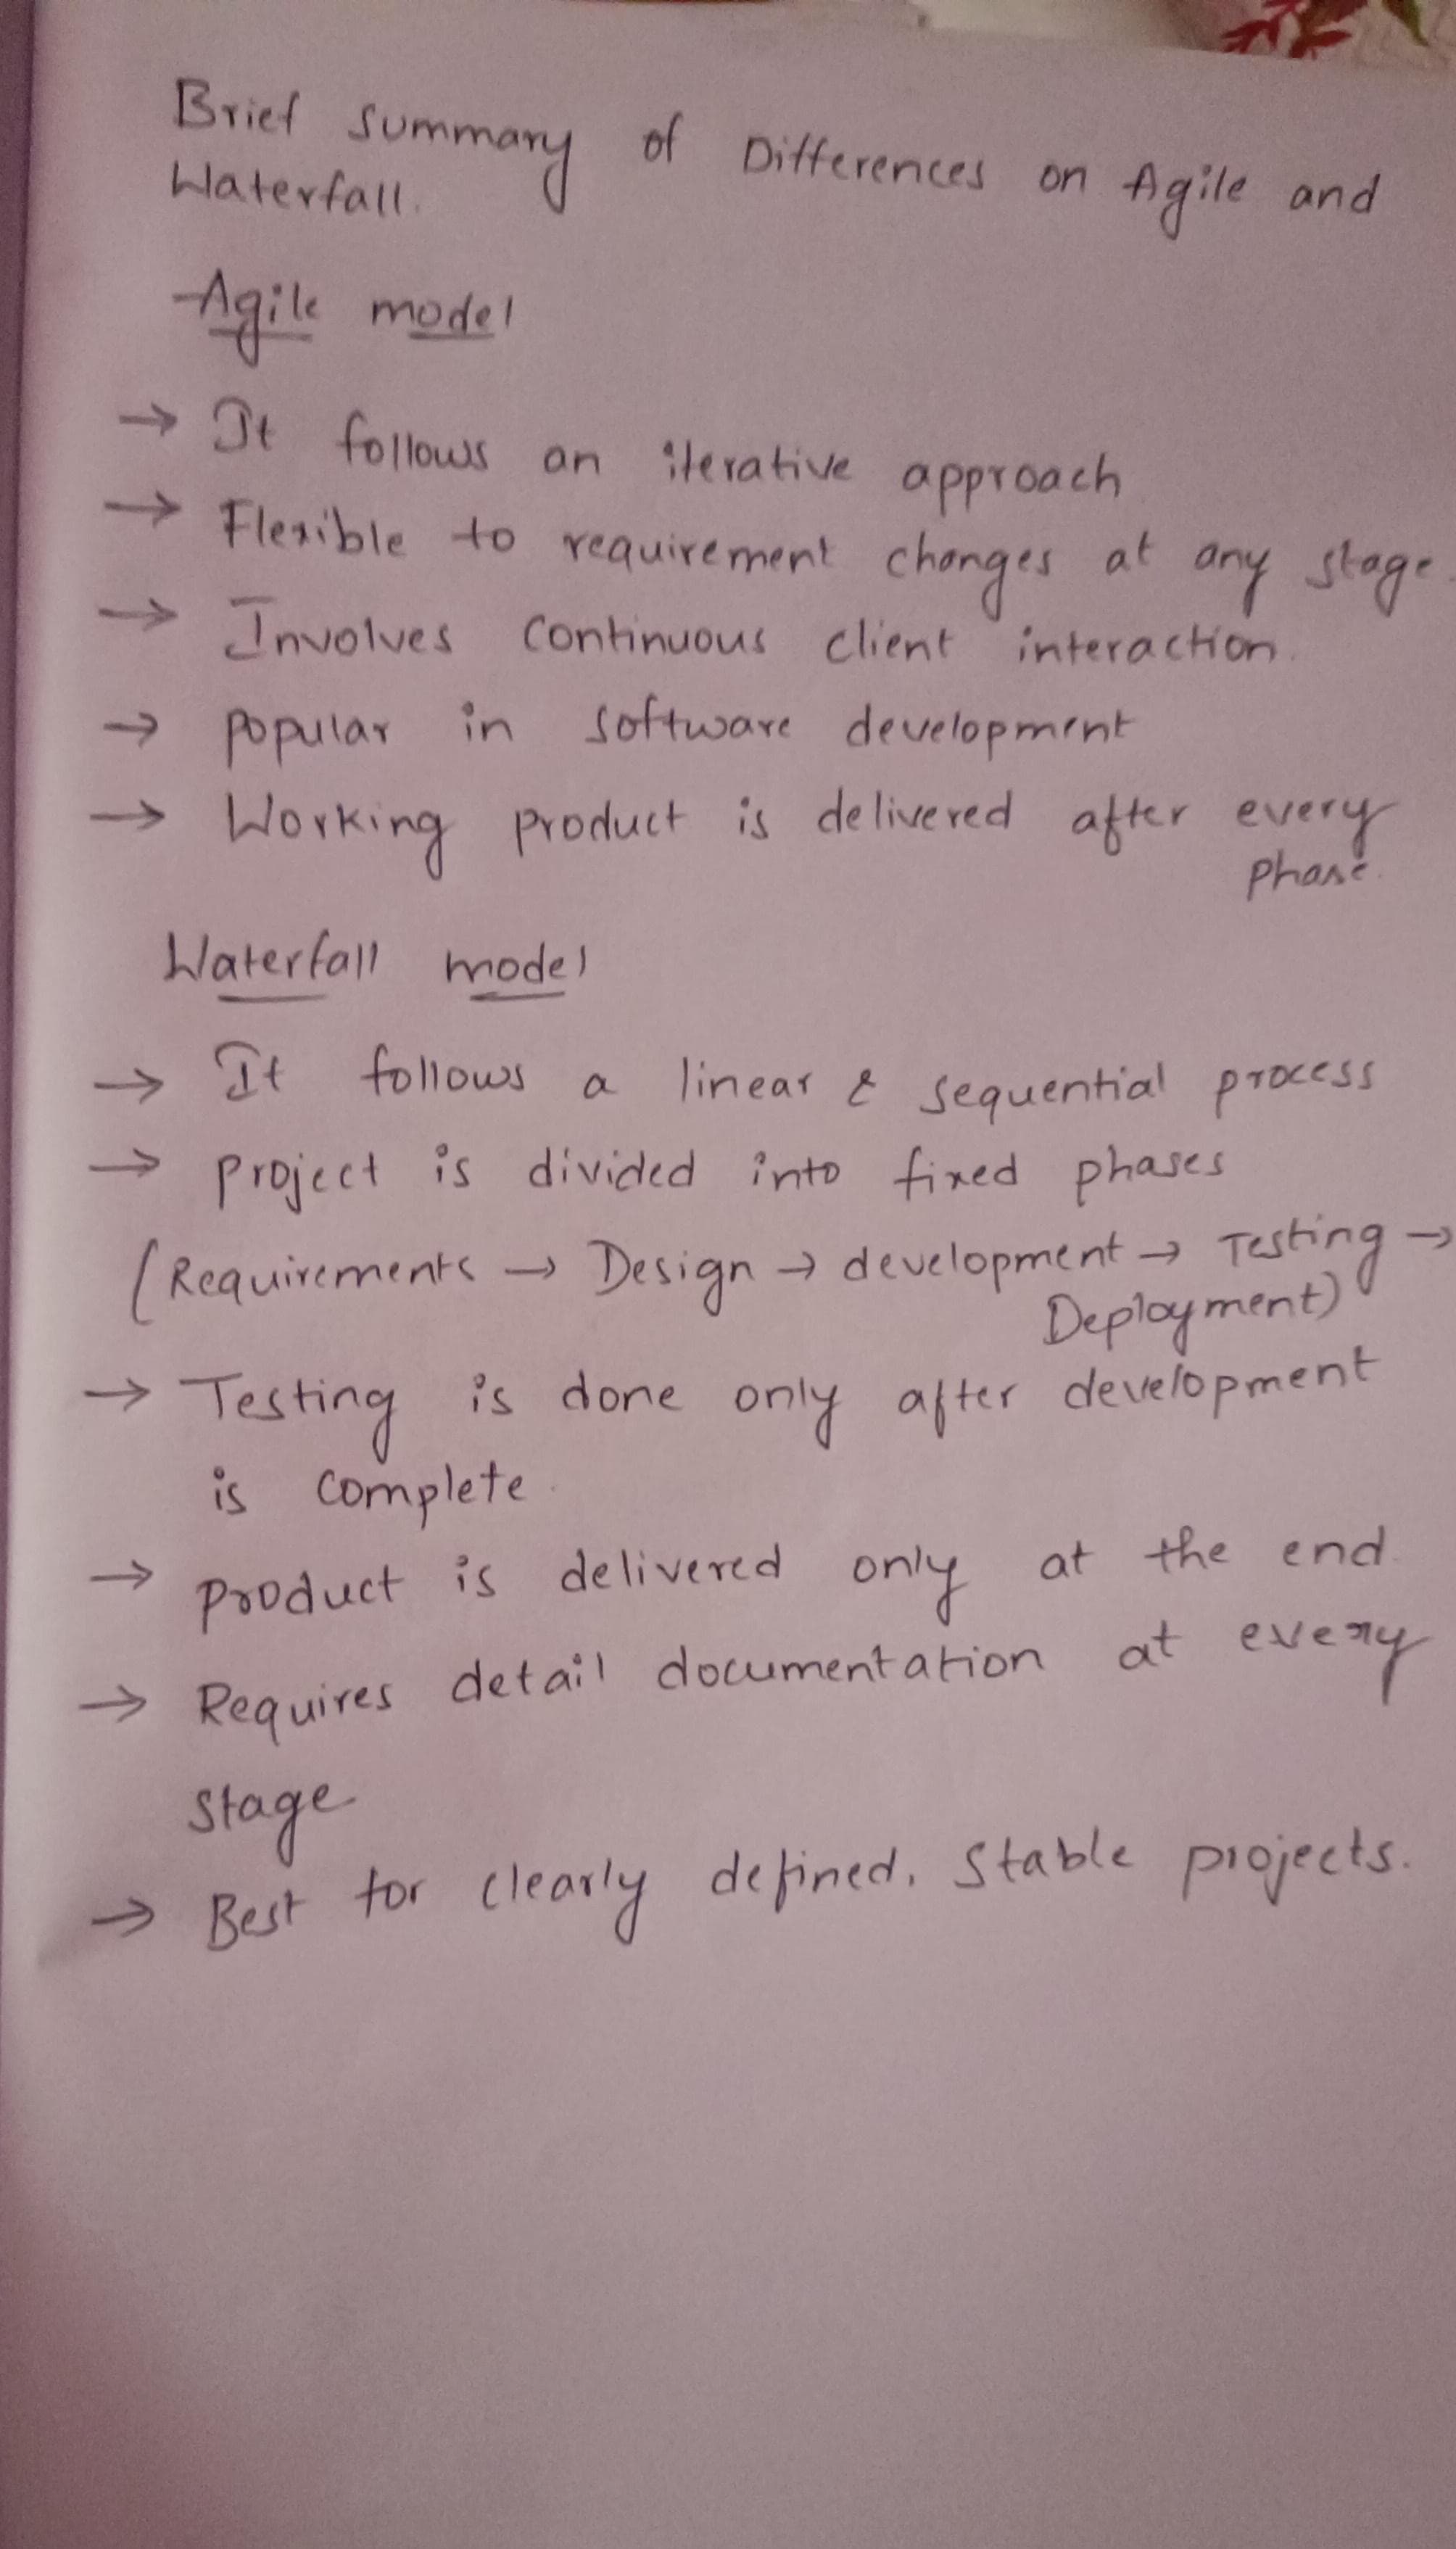 Brief summary of Differences on Agile and
Waterfall.
Agile model
→ It follows an iterative approach
→ Flexible to requirement changes at any stage.
→ Involves continuous client interaction.
→ popular in software development
→ Working product is delivered after every
phase.
Waterfall model
→ It follows a linear & sequential process
→ project is divided into fixed phases
(Requirements → Design → development → Testing →
Deployment)
→ Testing is done only after development
is complete.
→ product is delivered only at the end.
→ Requires detail documentation at every
stage.
→ Best for clearly defined, Stable projects.